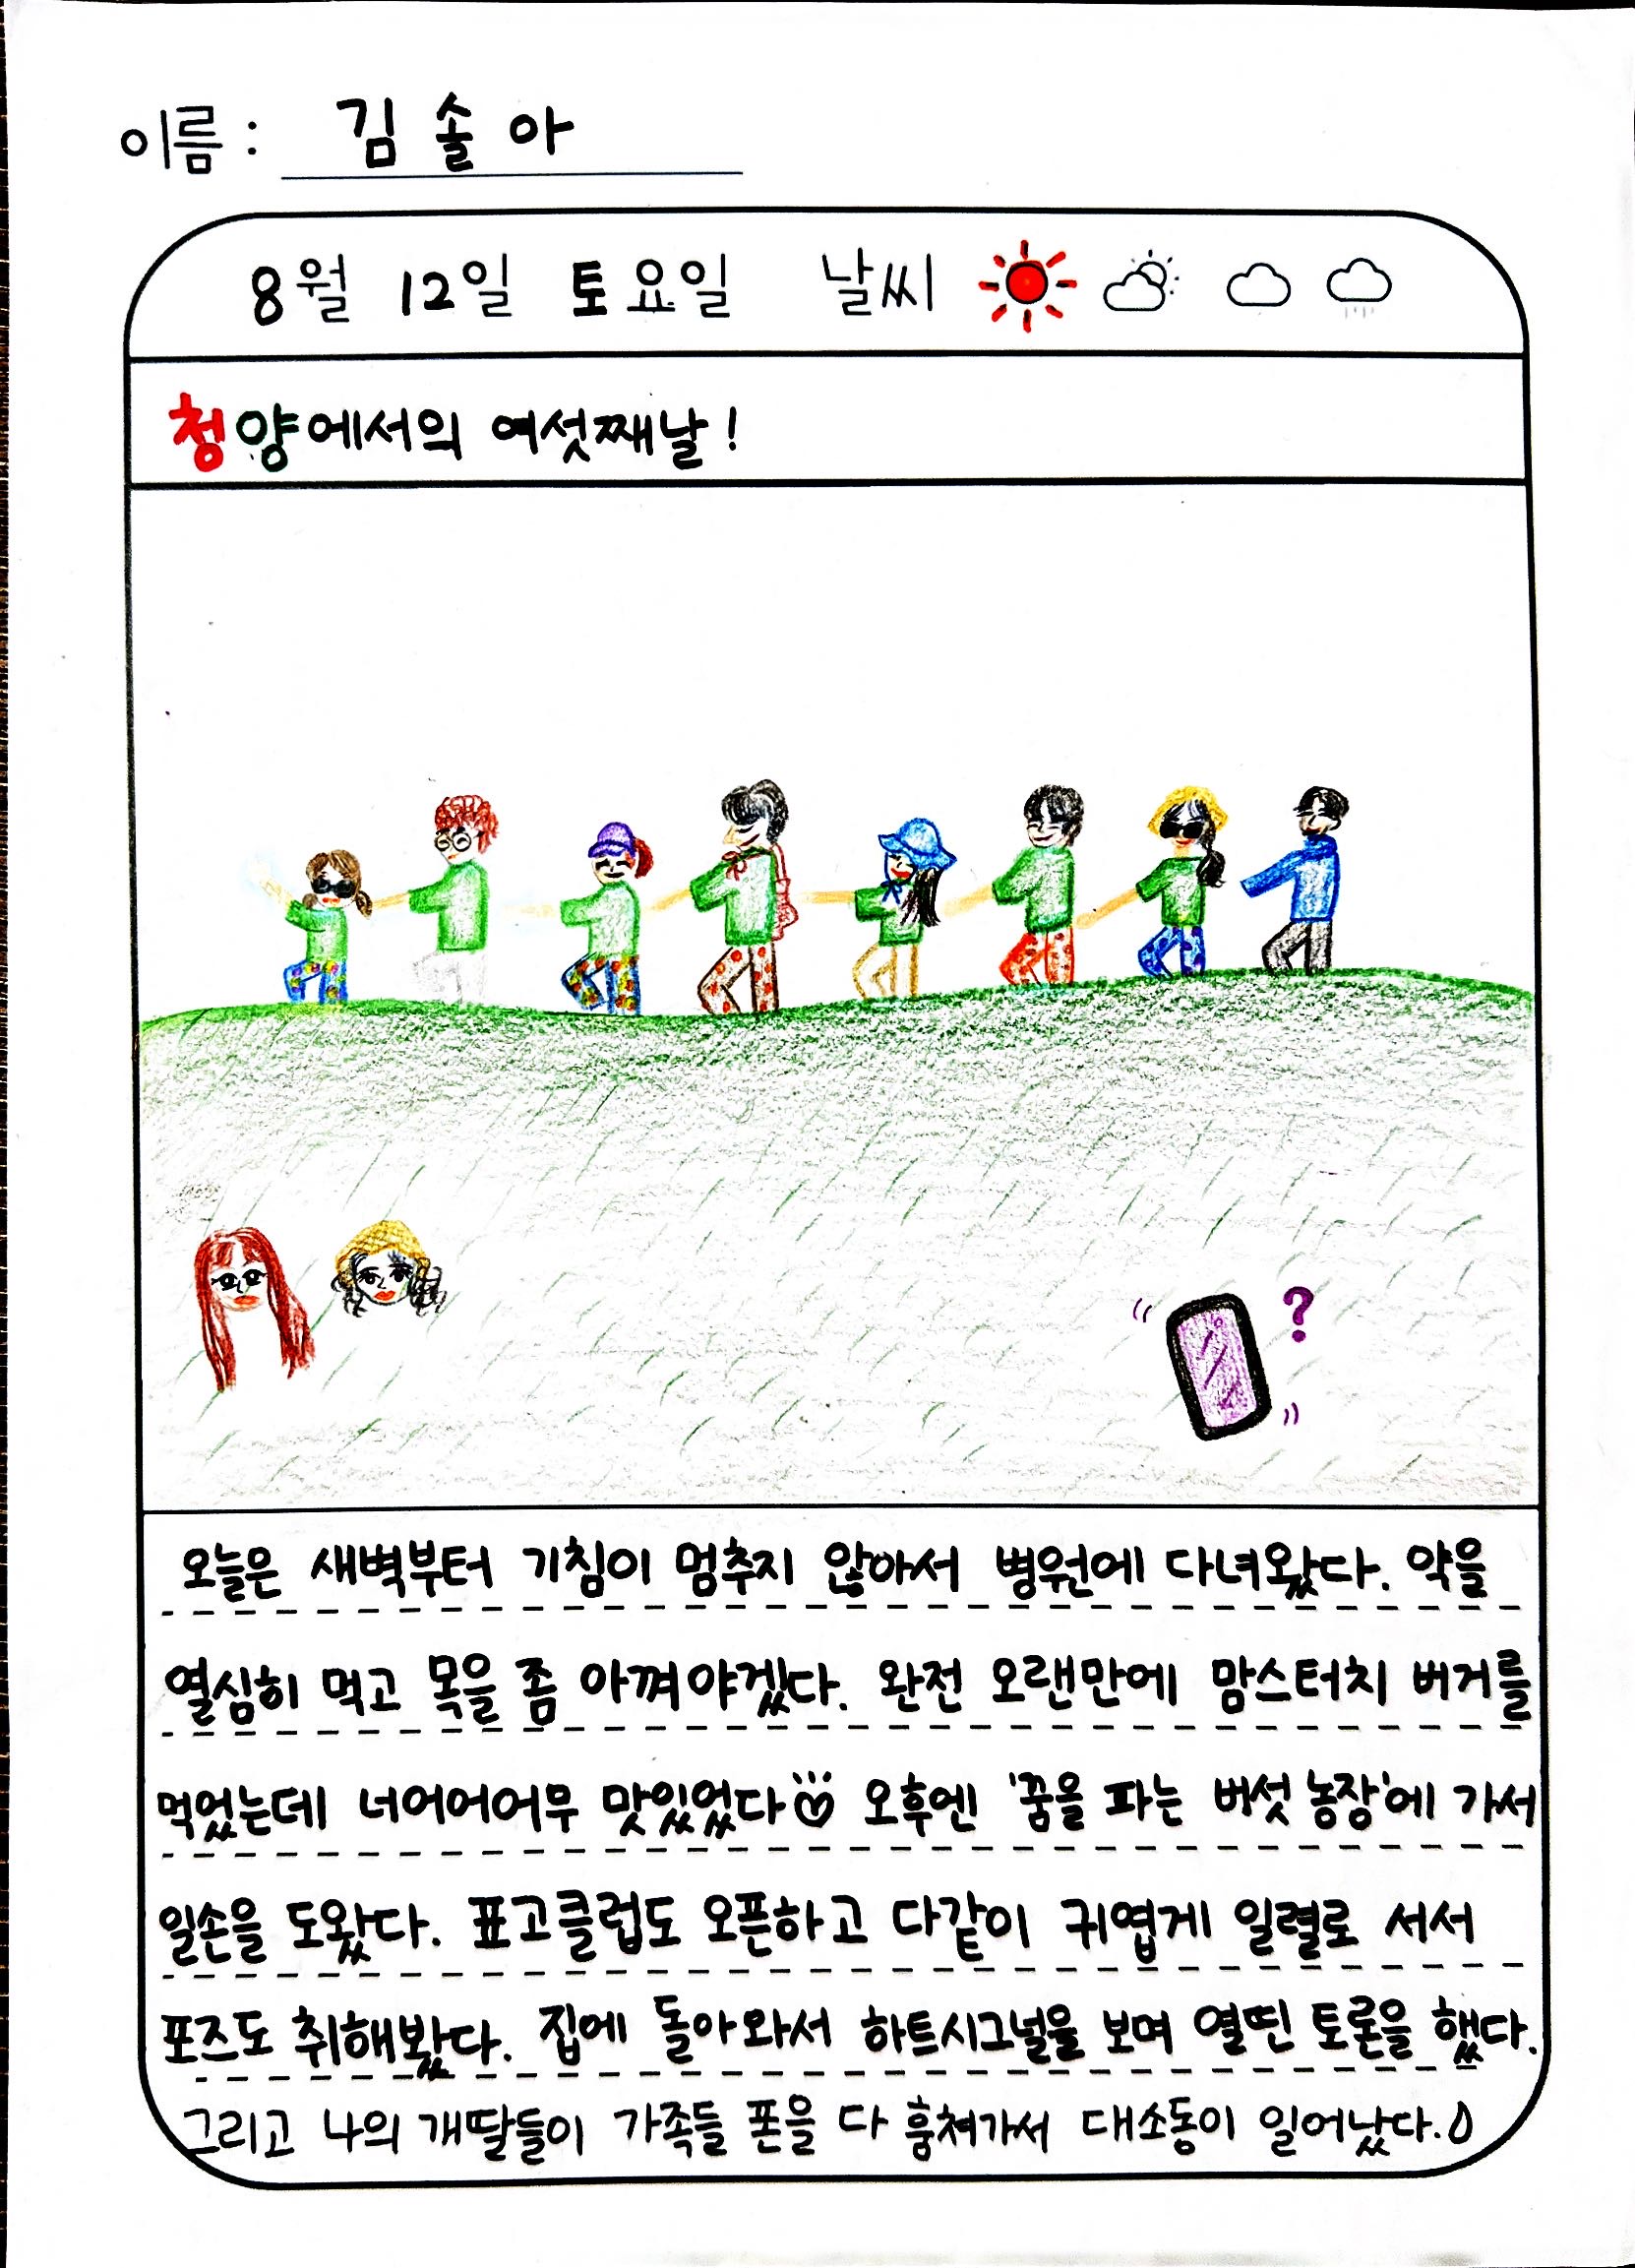 이름: 김솔아
8월 12일 토요일 날씨
청양에서의 여섯째날!
?
오늘은 새벽부터 기침이 멈추지 않아서 병원에 다녀왔다. 약을
열심히 먹고 목을 좀 아껴야겠다. 완전 오랜만에 맘스터치 버거를
먹었는데 너어어어무 맛있었다 오후엔 '꿈을 파는 버섯 농장'에 가서
일손을 도왔다. 표고클럽도 오픈하고 다같이 귀엽게 일렬로 서서
포즈도 취해봤다. 집에 돌아와서 하트시그널을 보며 열띤 토론을 했다.
그리고 나의 개딸들이 가족들 폰을 다 훔쳐가서 대소동이 일어났다.